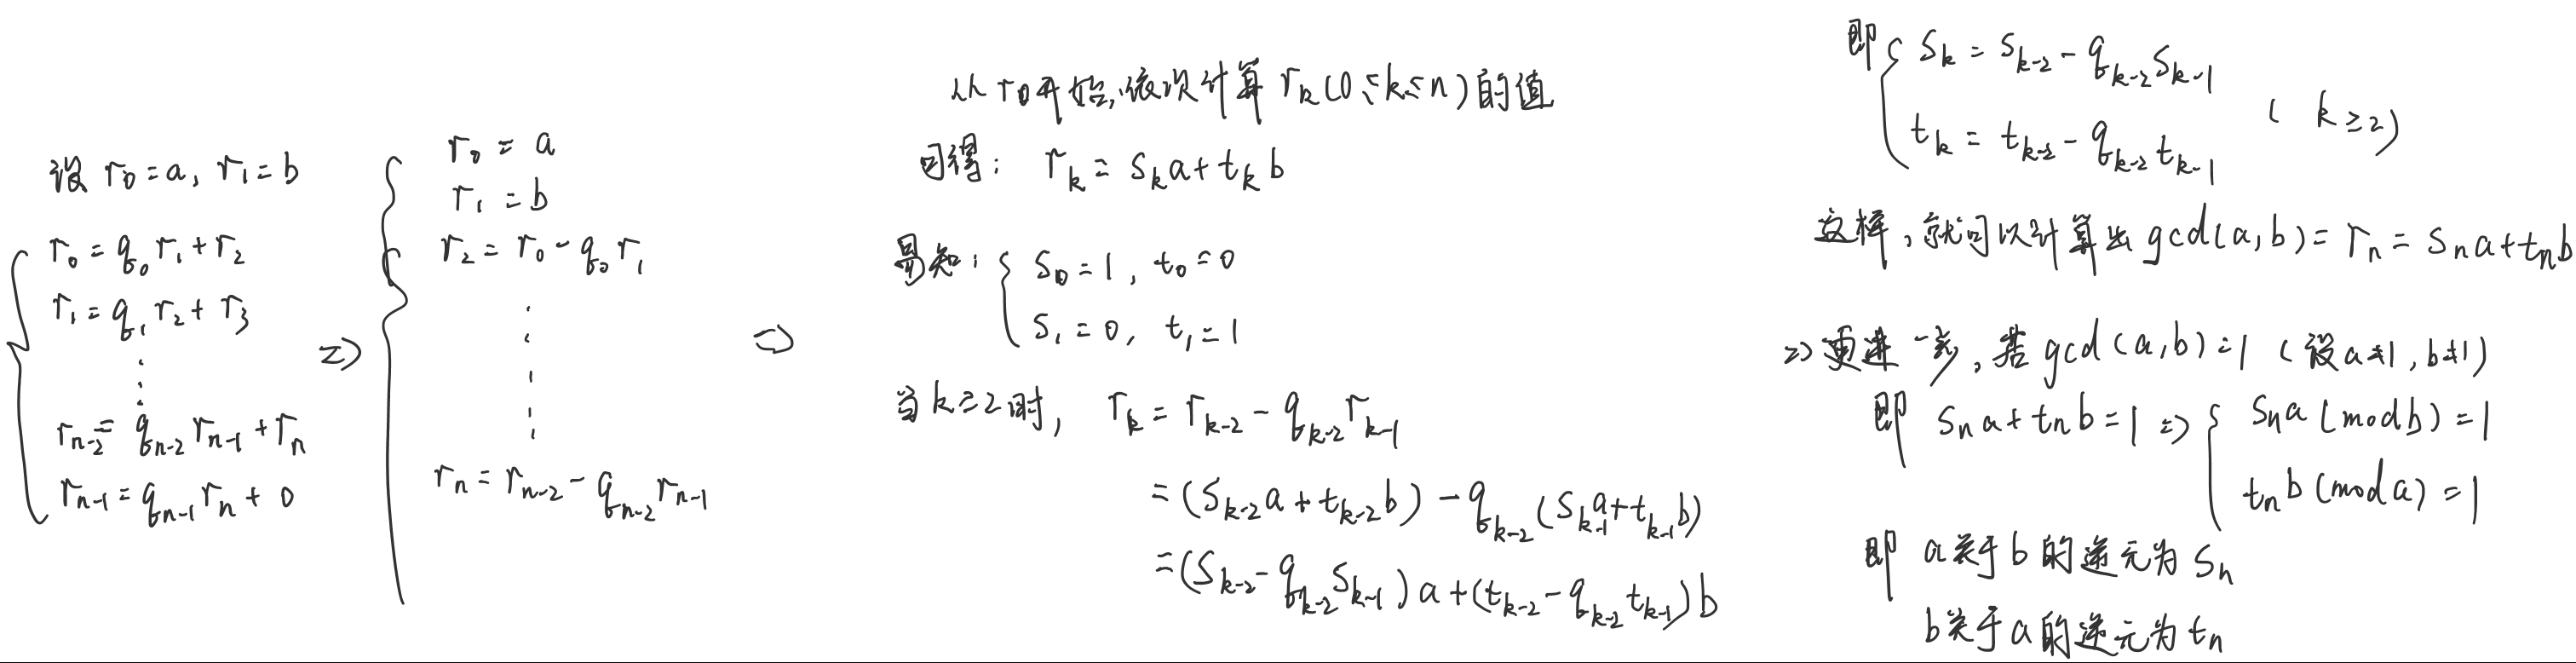 设 r₀ = a, r₁ = b
r₀ = q₀r₁ + r₂
r₁ = q₁r₂ + r₃
⋮
rₙ₋₂ = qₙ₋₂rₙ₋₁ + rₙ
rₙ₋₁ = qₙ₋₁rₙ + 0
=>
r₀ = a
r₁ = b
r₂ = r₀ - q₀r₁
⋮
rₙ = rₙ₋₂ - qₙ₋₂rₙ₋₁
=>
从r₀开始,依次计算 rₖ(0≤k≤n)的值
可得: rₖ = sₖa + tₖb
易知: s₀ = 1, t₀ = 0
s₁ = 0, t₁ = 1
当k≥2时, rₖ = rₖ₋₂ - qₖ₋₂rₖ₋₁
= (sₖ₋₂a + tₖ₋₂b) - qₖ₋₂(sₖ₋₁a + tₖ₋₁b)
= (sₖ₋₂ - qₖ₋₂sₖ₋₁)a + (tₖ₋₂ - qₖ₋₂tₖ₋₁)b
即 sₖ = sₖ₋₂ - qₖ₋₂sₖ₋₁
tₖ = tₖ₋₂ - qₖ₋₂tₖ₋₁ (k≥2)
这样,就可以计算出gcd(a,b) = rₙ = sₙa + tₙb
=> 更进一步,若gcd(a,b)=1 (设a≠1,b≠1)
即 sₙa + tₙb = 1 => sₙa (mod b) = 1
tₙb (mod a) = 1
即 a关于b的逆元为sₙ
b关于a的逆元为tₙ